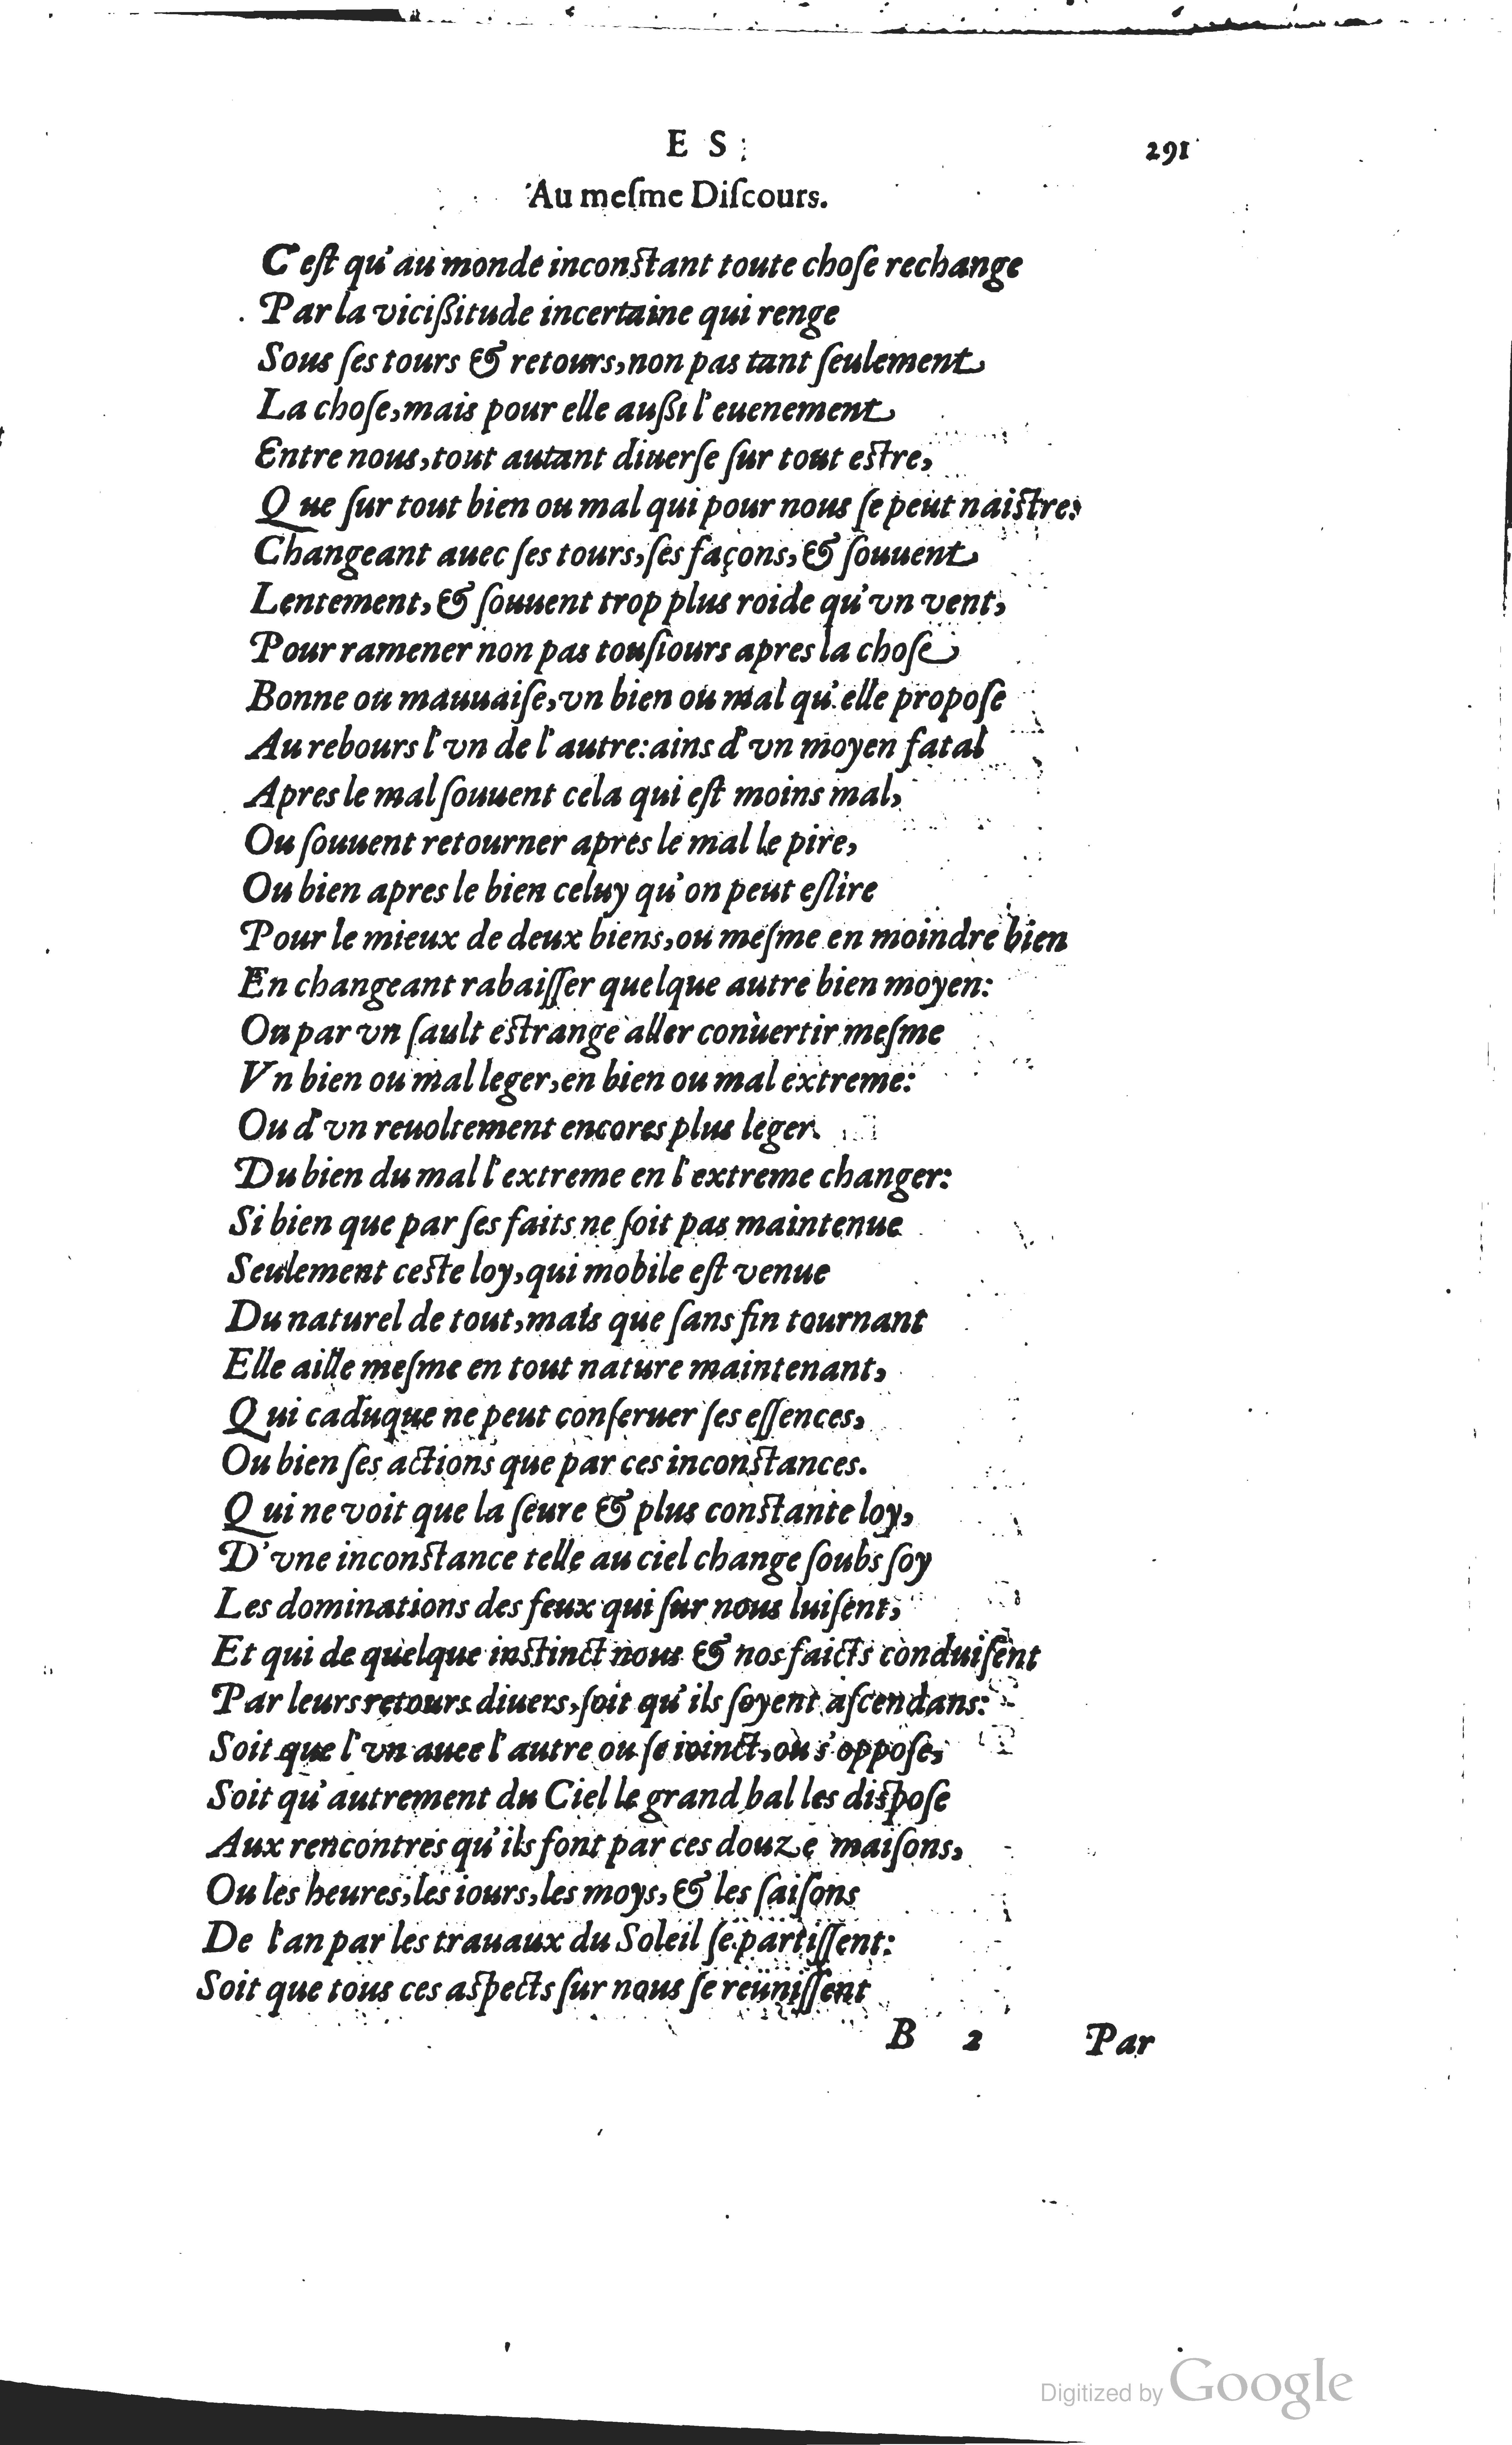 E S
291
Au meſme Diſcours.
C'eſt qu'au monde inconſtant toute choſe rechange
Par la viciſſitude incertaine qui renge
Sous ſes tours & retours, non pas tant ſeulement
La choſe, mais pour elle auſſi l'euenement
Entre nous, tout autant diuerſe ſur tout eſtre,
Que ſur tout bien ou mal qui pour nous ſe peut naiſtre:
Changeant auec ſes tours, ſes façons, & ſouuent
Lentement, & ſouuent trop plus roide qu'vn vent,
Pour ramener non pas touſiours apres la choſe
Bonne ou mauuaiſe, vn bien ou mal qu'elle propoſe
Au rebours l'vn de l'autre: ains d'vn moyen fatal
Apres le mal ſouuent cela qui eſt moins mal,
Ou ſouuent retourner apres le mal le pire,
Ou bien apres le bien celuy qu'on peut eſlire
Pour le mieux de deux biens, ou meſme en moindre bien
En changeant rabaiſſer quelque autre bien moyen:
Ou par vn ſault eſtrange aller conuertir meſme
Vn bien ou mal leger, en bien ou mal extreme:
Ou d'vn reuoltement encores plus leger
Du bien du mal l'extreme en l'extreme changer:
Si bien que par ſes faits ne ſoit pas maintenue
Seulement ceſte loy, qui mobile eſt venue
Du naturel de tout, mais que ſans fin tournant
Elle aille meſme en tout nature maintenant,
Qui caduque ne peut conſeruer ſes eſſences,
Ou bien ſes actions que par ces inconſtances.
Qui ne voit que la ſeure & plus conſtante loy,
D'vne inconſtance telle au ciel change ſoubs ſoy
Les dominations des feux qui ſur nous luiſent,
Et qui de quelque inſtinct nous & nos faicts conduiſent
Par leurs retours diuers, ſoit qu'ils ſoyent aſcendans:
Soit que l'vn auec l'autre ou ſe ioinct, ou s'oppoſe,
Soit qu'autrement du Ciel le grand bal les diſpoſe
Aux rencontres qu'ils font par ces douze maiſons,
Ou les heures, les iours, les moys, & les ſaiſons
De l'an par les trauaux du Soleil ſe partiſſent:
Soit que tous ces aſpects ſur nous ſe reüniſſent
B 2 Par
Digitized by Google